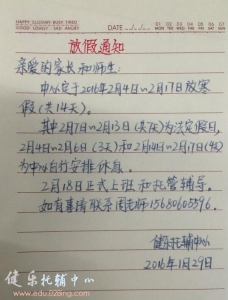 HAPPY CLOUDY BUSY TIRED
GOOD LOVELY SAD ANGRY
DATE
放假通知
亲爱的家长和师生:
中心定于2016年2月4日~2月17日放寒
假(共14天)。
其中2月7日~2月13日(共7天)为法定假日,
2月4日~6日(3天)和2月14日~17日(4天)
为中心自行安排休息。
2月18日正式上班和托管辅导。
如有事请联系周老师15680605596.
健乐托辅中心
2016年1月29日
健乐托辅中心